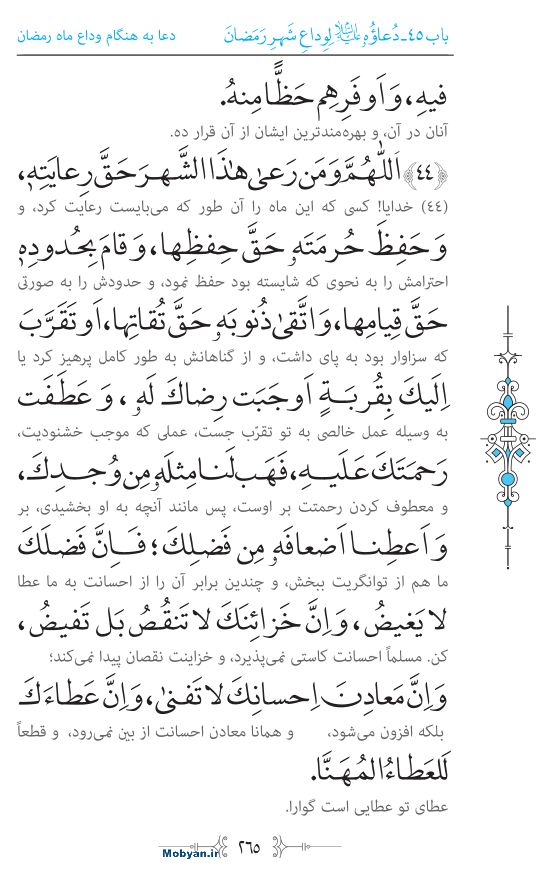 باب ٤٥ـ دُعاؤُهُ عليه‌السلام لِوِداعِ شَهرِ رَمَضانَ
دعا به هنگام وداع ماه رمضان
فيهِ، وَ اَوفَرِهِم حَظًّا مِنهُ.
آنان در آن، و بهره‌مندترین ایشان از آن قرار ده.
﴿٤٤﴾ اَللّٰهُمَّ وَ مَن رَعىٰ هٰذَا الشَّهرَ حَقَّ رِعايَتِهِ،
(٤٤) خدایا! کسی که این ماه را آن طور که می‌بایست رعایت کرد، و
وَ حَفِظَ حُرمَتَهُ حَقَّ حِفظِها، وَ قامَ بِحُدودِهِ
احترامش را به نحوی که شایسته بود حفظ نمود، و حدودش را به صورتی
حَقَّ قِيامِها، وَ اتَّقىٰ ذُنوبَهُ حَقَّ تُقاتِها، اَو تَقَرَّبَ
که سزاوار بود به پای داشت، و از گناهانش به طور کامل پرهیز کرد یا
اِلَيكَ بِقُربَةٍ اَوجَبَت رِضاكَ لَهُ، وَ عَطَفَت
به وسیله عمل خالصی به تو تقرّب جست، عملی که موجب خشنودیت،
رَحمَتَكَ عَلَيهِ، فَهَب لَنا مِثلَهُ مِن وُجدِكَ،
و معطوف کردن رحمتت بر اوست، پس مانند آنچه به او بخشیدی، بر
وَ اَعطِنا اَضعافَهُ مِن فَضلِكَ؛ فَاِنَّ فَضلَكَ
ما هم از توانگریت ببخش، و چندین برابر آن را از احسانت به ما عطا
لا يَغيضُ، وَ اِنَّ خَزائِنَكَ لا تَنقُصُ بَل تَفيضُ،
کن. مسلماً احسانت کاستی نمی‌پذیرد، و خزاینت نقصان پیدا نمی‌کند؛
وَ اِنَّ مَعادِنَ اِحسانِكَ لا تَفنىٰ، وَ اِنَّ عَطاءَكَ
بلکه افزون می‌شود، و همانا معادن احسانت از بین نمی‌رود، و قطعاً
لَلعَطاءُ المُهَنَّا.
عطای تو عطایی است گوارا.
٢٦٥
Mobyan.ir